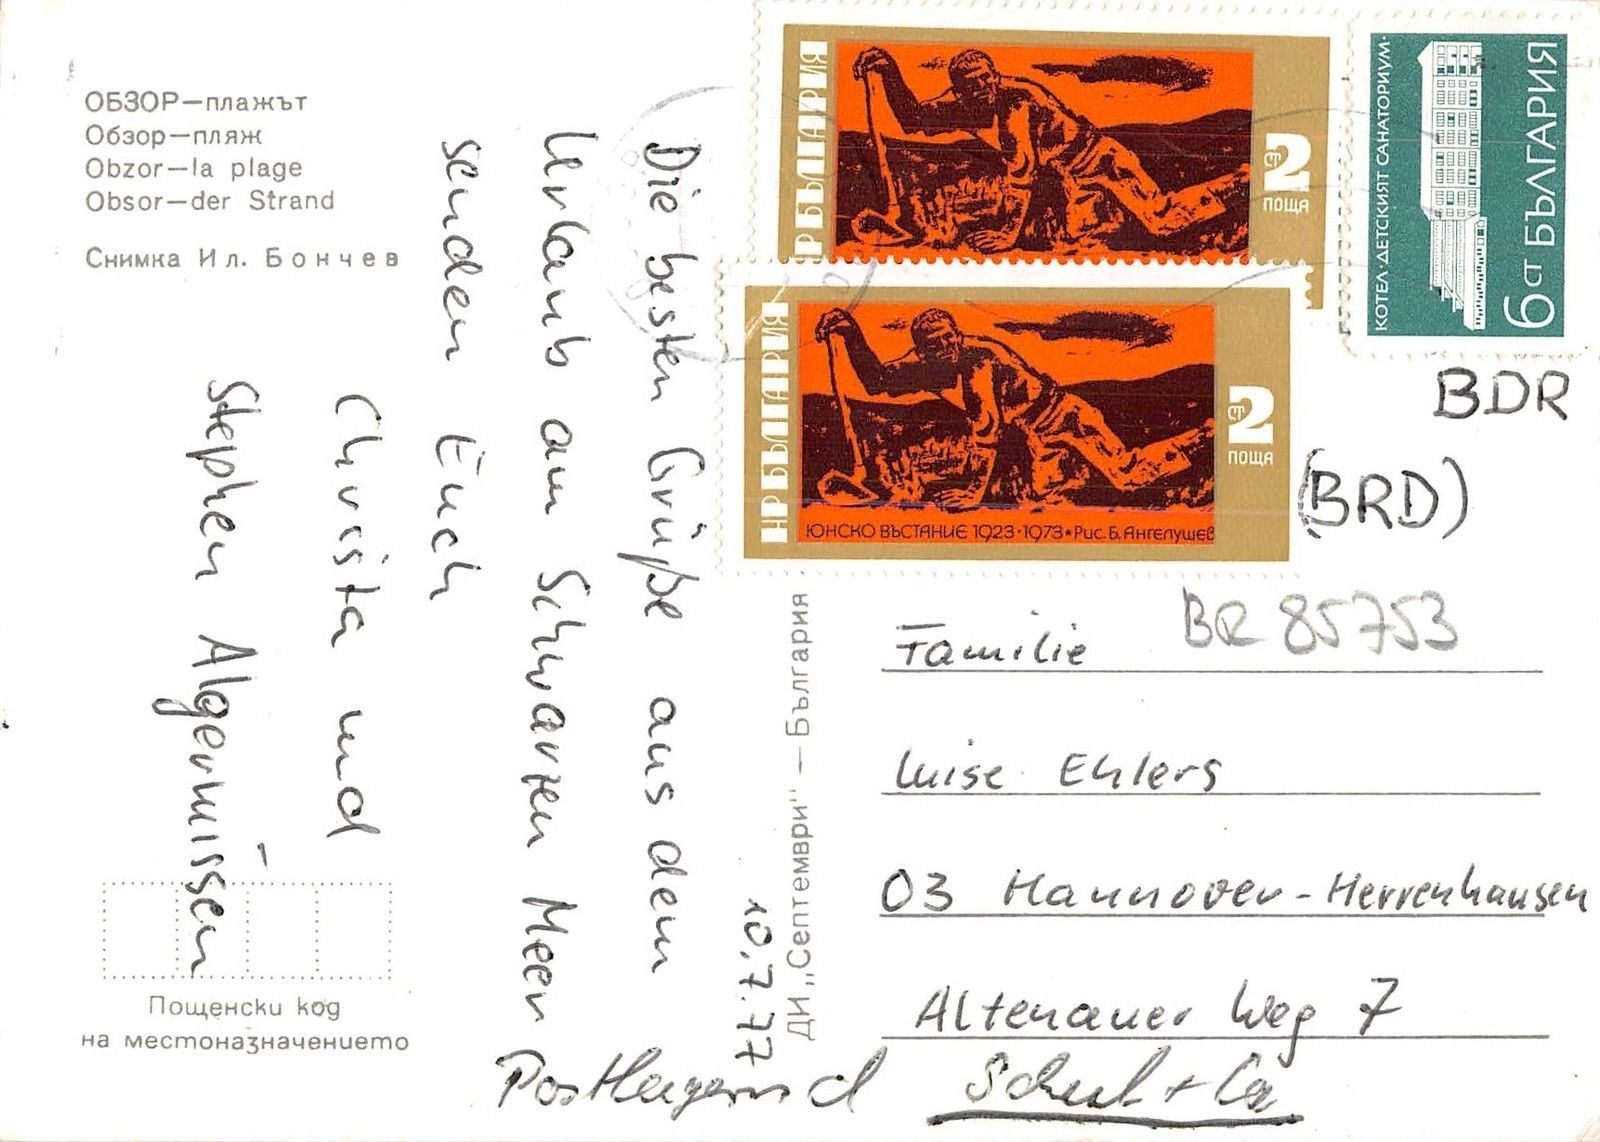 ОБЗОР—плажът
Обзор—пляж
Obzor—la plage
Obsor—der Strand
Снимка Ил. Бончев
10.7.77
Die besten Grüße aus dem
Urlaub am Schwarzen Meer
senden Euch
Christa und
Stephen Algermissen
Пощенски код
на местоназначението
ДИ „Септември" — България
НР БЪЛГАРИЯ
2 СТ
ПОЩА
НР БЪЛГАРИЯ
2 СТ
ПОЩА
ЮНСКО ВЪСТАНИЕ 1923·1973★Рис. Б. Ангелушев
КОТЕЛ·ДЕТСКИЯТ САНАТОРИУМ·
6 СТ БЪЛГАРИЯ
BDR
(BRD)
BR 85753
Familie
Luise Ehlers
03 Hannover-Herrenhausen
Altenauer Weg 7
Postlagernd